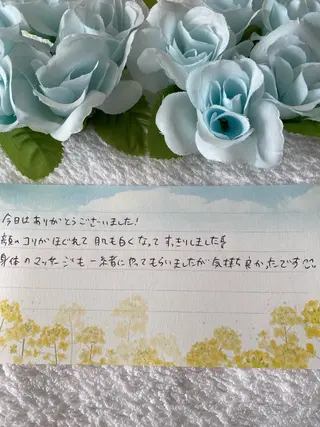 今日はありがとうございました!
顔のコリがほぐれて肌も白くなってすっきりしました
身体のマッサージも一緒にやってもらいましたが気持ち良かったです